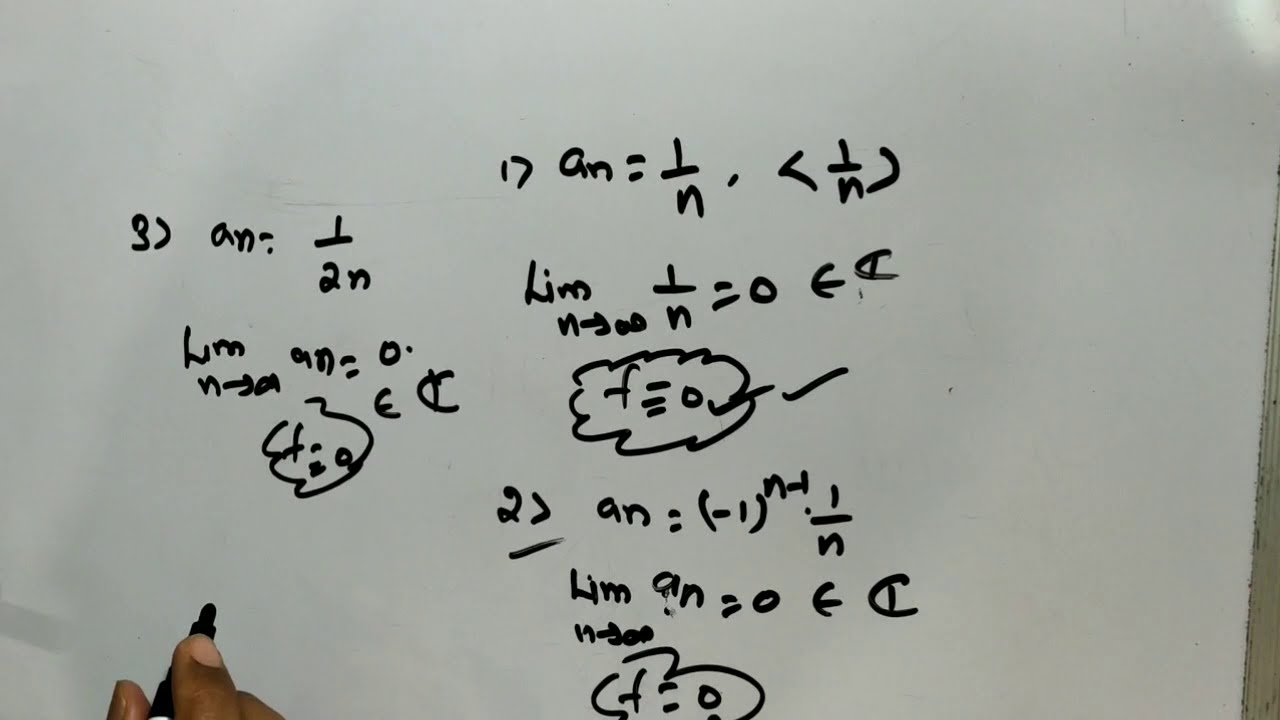 1) an = 1/n , < 1/n >
Lim n→∞ 1/n = 0 ∈ ℂ
f = 0 ✓ ✓
2) an = (-1)^(n-1) · 1/n
Lim n→∞ an = 0 ∈ ℂ
f = 0
3) an = 1/2n
Lim n→∞ an = 0 ∈ ℂ
f = 0